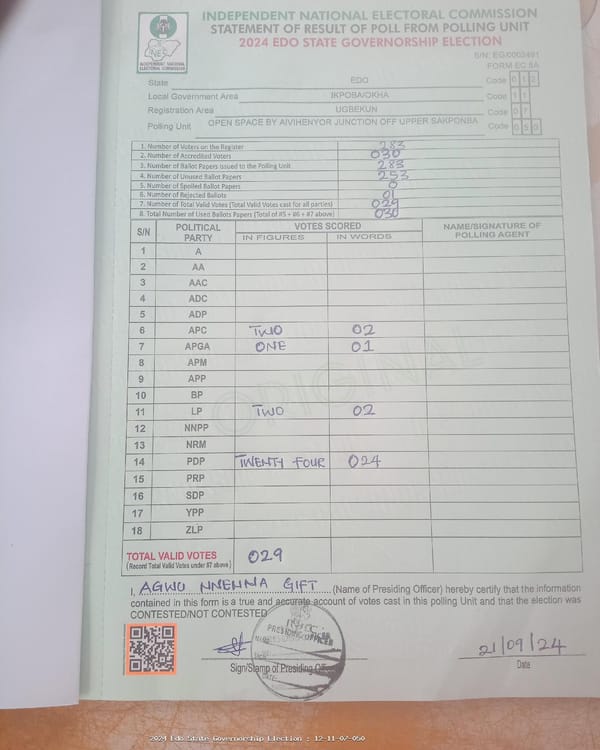 INDEPENDENT NATIONAL ELECTORAL COMMISSION
STATEMENT OF RESULT OF POLL FROM POLLING UNIT
2024 EDO STATE GOVERNORSHIP ELECTION
INEC
INDEPENDENT NATIONAL ELECTORAL COMMISSION
FORM EC 8A
State EDO Code 0 1 2
Local Government Area IKPOBA/OKHA Code 1 1
Registration Area UGBEKUN Code 0 7
Polling Unit OPEN SPACE BY AIVIHENYOR JUNCTION OFF UPPER SAKPONBA Code 0 5 0
1. Number of Voters on the Register 283
2. Number of Accredited Voters 030
3. Number of Ballot Papers issued to the Polling Unit 283
4. Number of Unused Ballot Papers 253
5. Number of Spoiled Ballot Papers 0
6. Number of Rejected Ballots 01
7. Number of Total Valid Votes (Total Valid Votes cast for all parties) 029
8. Total Number of Used Ballots Papers (Total of #5 + #6 + #7 above) 030
S/N POLITICAL PARTY VOTES SCORED NAME/SIGNATURE OF POLLING AGENT
IN FIGURES IN WORDS
1 A
2 AA
3 AAC
4 ADC
5 ADP
6 APC TWO 02
7 APGA ONE 01
8 APM
9 APP
10 BP
11 LP TWO 02
12 NNPP
13 NRM
14 PDP TWENTY FOUR 024
15 PRP
16 SDP
17 YPP
18 ZLP
ORIGINAL
TOTAL VALID VOTES 029
(Record Total Valid Votes under #7 above)
I, AGWU NNENNA GIFT (Name of Presiding Officer) hereby certify that the information
contained in this form is a true and accurate account of votes cast in this polling Unit and that the election was
CONTESTED/NOT CONTESTED
PRESIDING OFFICER
21/09/24
Sign/Stamp of Presiding Date
2024 Edo State Governorship Election : 12-11-07-050